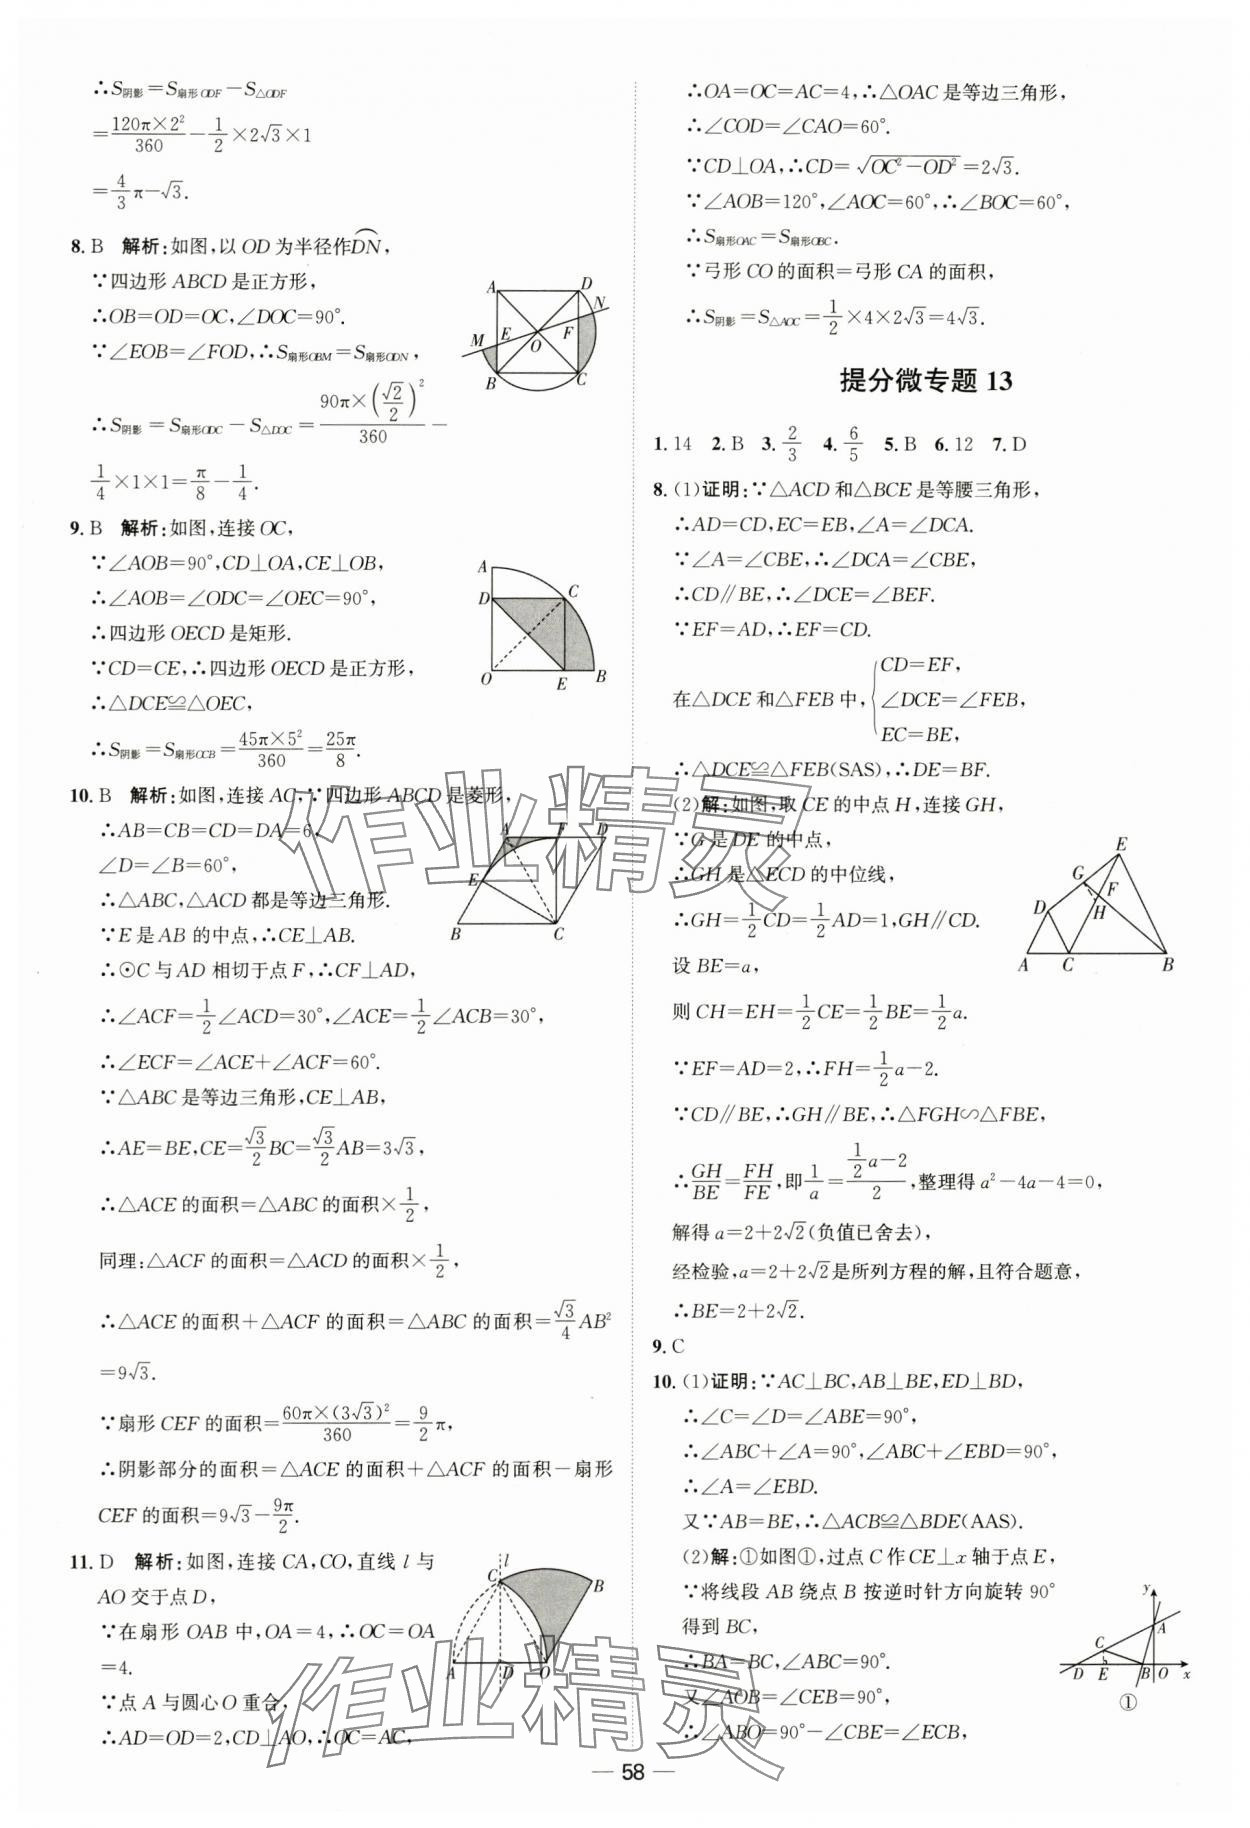 ∴S阴影=S扇形ODF−S△ODF
=120π×2²/360−1/2×2√3×1
=4/3π−√3.
8. B 解析:如图,以OD为半径作DN⌒,
∵四边形ABCD是正方形,
∴OB=OD=OC,∠DOC=90°.
∵∠EOB=∠FOD,∴S扇形OBM=S扇形ODN,
∴S阴影=S扇形ODC−S△DOC=90π×(√2/2)²/360−
1/4×1×1=π/8−1/4.
A D N M E F O B C
9. B 解析:如图,连接OC,
∵∠AOB=90°,CD⊥OA,CE⊥OB,
∴∠AOB=∠ODC=∠OEC=90°,
∴四边形OECD是矩形.
∵CD=CE,∴四边形OECD是正方形,
∴△DCE≌△OEC,
∴S阴影=S扇形OCB=45π×5²/360=25π/8.
A C D O E B
10. B 解析:如图,连接AC,∵四边形ABCD是菱形,
∴AB=CB=CD=DA=6,
∠D=∠B=60°,
∴△ABC,△ACD都是等边三角形.
∵E是AB的中点,∴CE⊥AB.
∴⊙C与AD相切于点F,∴CF⊥AD,
∴∠ACF=1/2∠ACD=30°,∠ACE=1/2∠ACB=30°,
∴∠ECF=∠ACE+∠ACF=60°.
∵△ABC是等边三角形,CE⊥AB,
∴AE=BE,CE=√3/2BC=√3/2AB=3√3,
∴△ACE的面积=△ABC的面积×1/2,
同理:△ACF的面积=△ACD的面积×1/2,
∴△ACE的面积+△ACF的面积=△ABC的面积=√3/4AB²
=9√3.
∵扇形CEF的面积=60π×(3√3)²/360=9/2π,
∴阴影部分的面积=△ACE的面积+△ACF的面积−扇形
CEF的面积=9√3−9π/2.
A F D E B C
11. D 解析:如图,连接CA,CO,直线l与
AO交于点D,
∵在扇形OAB中,OA=4,∴OC=OA
=4.
∵点A与圆心O重合,
∴AD=OD=2,CD⊥AO,∴OC=AC,
l C B A D O
∴OA=OC=AC=4,∴△OAC是等边三角形,
∴∠COD=∠CAO=60°.
∵CD⊥OA,∴CD=√(OC²−OD²)=2√3.
∵∠AOB=120°,∠AOC=60°,∴∠BOC=60°,
∴S扇形OAC=S扇形OBC.
∵弓形CO的面积=弓形CA的面积,
∴S阴影=S△AOC=1/2×4×2√3=4√3.
提分微专题13
1. 14 2. B 3. 2/3 4. 6/5 5. B 6. 12 7. D
8. (1)证明:∵△ACD和△BCE是等腰三角形,
∴AD=CD,EC=EB,∠A=∠DCA.
∵∠A=∠CBE,∴∠DCA=∠CBE,
∴CD∥BE,∴∠DCE=∠BEF.
∵EF=AD,∴EF=CD.
在△DCE和△FEB中,{CD=EF,
∠DCE=∠FEB,
EC=BE,
∴△DCE≌△FEB(SAS),∴DE=BF.
(2)解:如图,取CE的中点H,连接GH,
∵G是DE的中点,
∴GH是△ECD的中位线,
∴GH=1/2CD=1/2AD=1,GH∥CD.
设BE=a,
则CH=EH=1/2CE=1/2BE=1/2a.
∵EF=AD=2,∴FH=1/2a−2.
∵CD∥BE,∴GH∥BE,∴△FGH∽△FBE,
∴GH/BE=FH/FE,即1/a=(1/2a−2)/2,整理得a²−4a−4=0,
解得a=2+2√2(负值已舍去),
经检验,a=2+2√2是所列方程的解,且符合题意,
∴BE=2+2√2.
E G F D H A C B
9. C
10. (1)证明:∵AC⊥BC,AB⊥BE,ED⊥BD,
∴∠C=∠D=∠ABE=90°,
∴∠ABC+∠A=90°,∠ABC+∠EBD=90°,
∴∠A=∠EBD.
又∵AB=BE,∴△ACB≌△BDE(AAS).
(2)解:①如图①,过点C作CE⊥x轴于点E,
∵将线段AB绕点B按逆时针方向旋转90°
得到BC,
∴BA=BC,∠ABC=90°.
又∠AOB=∠CEB=90°,
∴∠ABO=90°−∠CBE=∠ECB,
y A C D E B O x
①
作业精灵
作业精灵
— 58 —